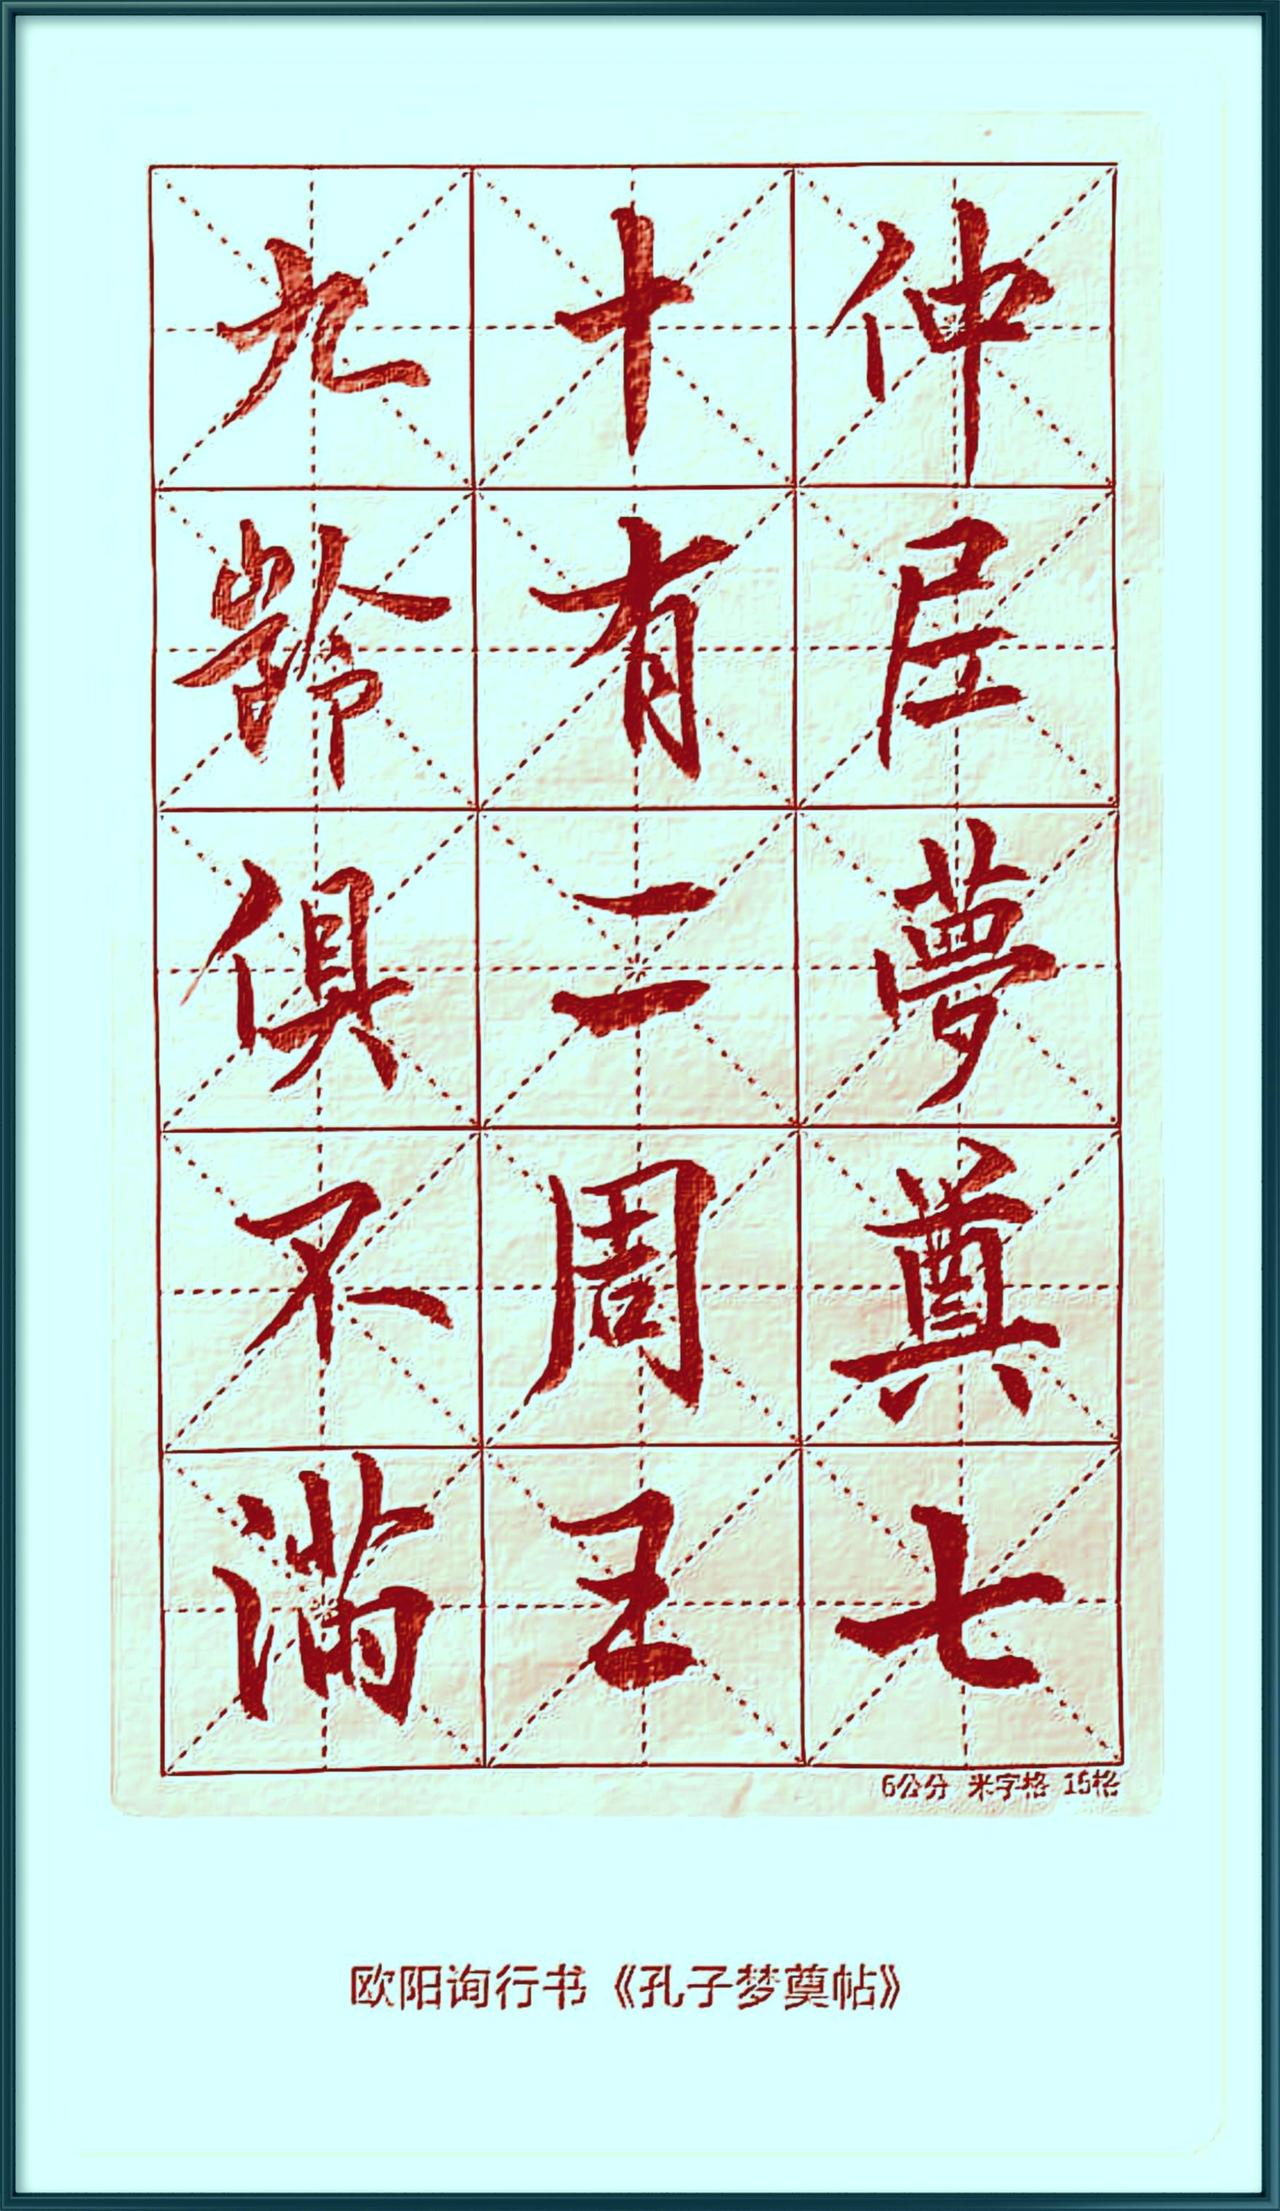 仲尼夢奠七
十有二周王
九齡俱不滿
6公分 米字格 15格
欧阳询行书《孔子梦奠帖》